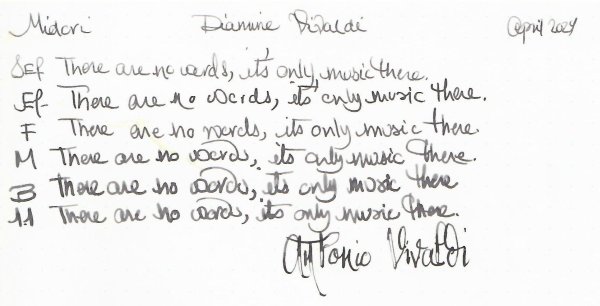 Midori Diamine Vivaldi April 2024
SEF There are no words, it's only music there.
EF There are no words, it's only music there.
F There are no words, it's only music there.
M There are no words, it's only music there.
B There are no words, it's only music there
1.1 There are no words, it's only music there.
Antonio Vivaldi